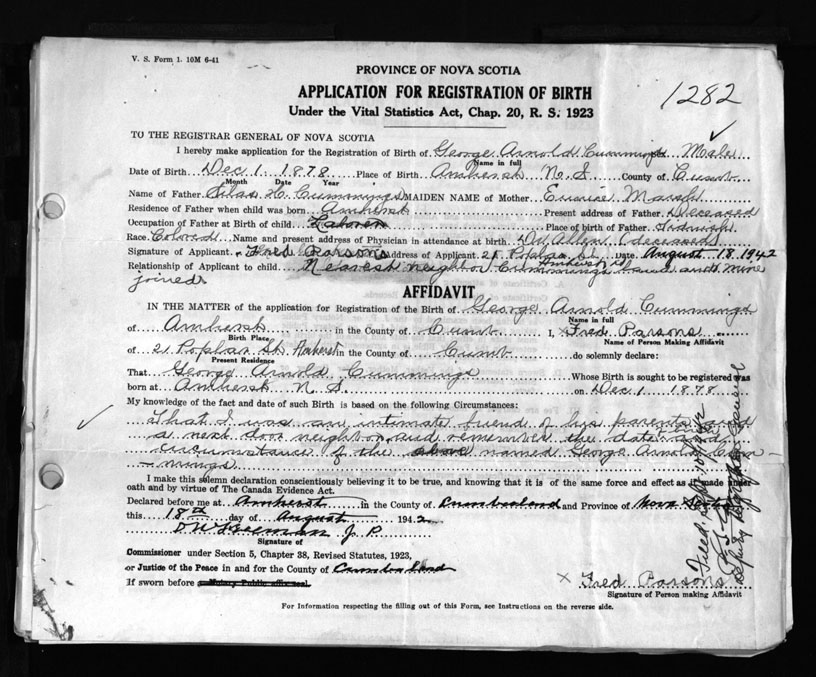 V. S. Form 1. 10M 6-41
PROVINCE OF NOVA SCOTIA
APPLICATION FOR REGISTRATION OF BIRTH
1282
Under the Vital Statistics Act, Chap. 20, R. S. 1923
TO THE REGISTRAR GENERAL OF NOVA SCOTIA
I hereby make application for the Registration of Birth of George Arnold Cummings Male
Name in full
Date of Birth Dec 1 1878 Place of Birth Amherst N. S County of Cumb
Month Date Year
Name of Father Silas H. Cummings MAIDEN NAME of Mother Eunice Marsh
Residence of Father when child was born Amherst Present address of Father Deceased
Occupation of Father at Birth of child Laborer Place of birth of Father
Race Colored Name and present address of Physician in attendance at birth Dr Allen (deceased)
Signature of Applicant Fred Parsons Address of Applicant 21 Poplar St Date August 18 1942
Amherst
Relationship of Applicant to child Nearest neighbor Cummings land and mine
joined
AFFIDAVIT
IN THE MATTER of the application for Registration of the Birth of George Arnold Cummings
Name in full
of Amherst in the County of Cumb I, Fred Parsons
Birth Place Name of Person Making Affidavit
of 21 Poplar St. Amherst in the County of Cumb do solemnly declare:
Present Residence
That George Arnold Cummings Whose Birth is sought to be registered was
born at Amherst N. S. on Dec 1 1878
My knowledge of the fact and date of such Birth is based on the following Circumstances:
That I was an intimate friend of his parents and
a next door neighbor and remember the date and
circumstance of the above named George Arnold Cum-
-mings
I make this solemn declaration conscientiously believing it to be true, and knowing that it is of the same force and effect as if made under
oath and by virtue of The Canada Evidence Act.
Declared before me at Amherst in the County of Cumberland and Province of Nova Scotia
this 18th day of August 1942
J. P.
Signature of
Commissioner under Section 5, Chapter 38, Revised Statutes, 1923,
or Justice of the Peace in and for the County of Cumberland
If sworn before Notary Public affix seal
x Fred Parsons
Signature of Person making Affidavit
For Information respecting the filling out of this Form, see Instructions on the reverse side.
Filed Sept. 10
Deputy Registrar General